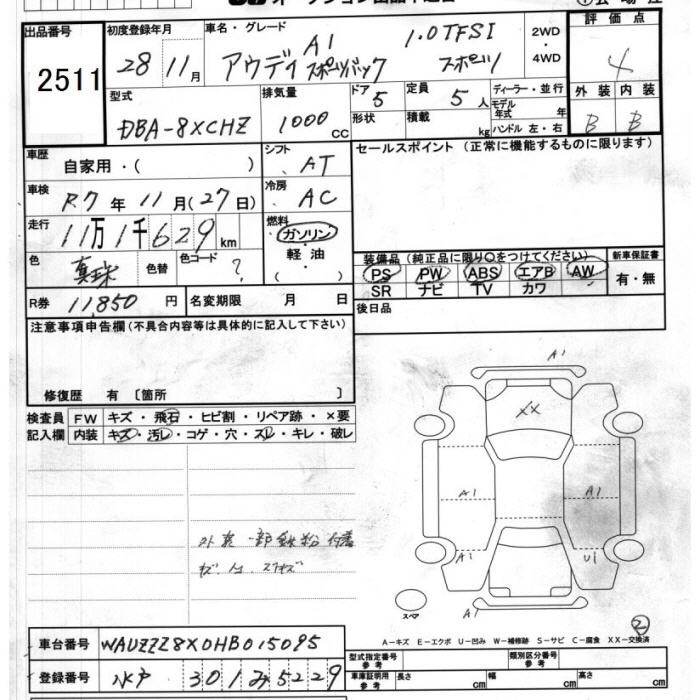 出品番号
2511
初度登録年月
28 11月
車名・グレード
A1 1.0TFSI
アウディ スポーツバック スポーツ
2WD
・
4WD
評価点
4
外装 内装
B B
型式
DBA-8XCHZ
排気量
1000 cc
ドア 5
形状
定員 5 人
積載 kg
ディーラー・並行
モデル年式 年
ハンドル 左・右
車歴
自家用・( )
シフト
AT
車検
R7 年 11 月(27日)
冷房
AC
走行
11万1千629km
燃料
ガソリン
・
軽油
( )
色 真珠
色替
色コード ?
R券 11,850 円
名変期限 月 日
セールスポイント (正常に機能するものに限ります)
装備品 (純正品に限り○をつけてください)
PS PW ABS エアB AW
SR ナビ TV カワ
新車保証書
有・無
後日品
注意事項申告欄(不具合内容等は具体的に記入して下さい)
修復歴 有〔箇所 〕
検査員記入欄
FW キズ・飛石・ヒビ割・リペア跡・×要
内装 キズ・汚レ・コゲ・穴・スレ・キレ・破レ
外装一部鉄粉付着
A1
XX
A1
A1
A1
U1
A1
スペア
2
A-キズ E-エクボ U-凹み W-補修跡 S-サビ C-腐食 XX-交換済
車台番号 WAUZZZ8X0HB015095
登録番号 水戸 301み5229
型式指定番号 参考
類別区分番号 参考
車庫証明用 参考
長さ cm
幅 cm
高さ cm